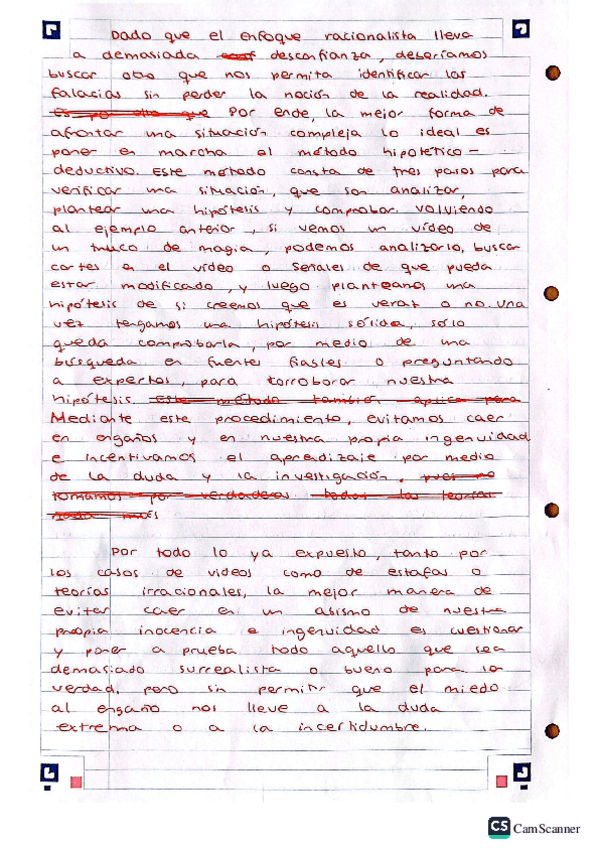 Dado que el enfoque racionalista lleva
a demasiada desconfianza, deberíamos
buscar otro que nos permita identificar las
falacias sin perder la noción de la realidad.
Es por ello que Por ende, la mejor forma de
afrontar una situación compleja lo ideal es
poner en marcha el método hipotético-
deductivo. Este método consta de tres pasos para
verificar una situación, que son analizar,
plantear una hipótesis y comprobar. Volviendo
al ejemplo anterior, si vemos un vídeo de
un truco de magia, podemos analizarlo, buscar
cortes en el vídeo o señales de que pueda
estar modificado, y luego planteanos una
hipótesis de si creemos que es veraz o no. Una
vez tengamos una hipótesis sólida, solo
queda comprobarla, por medio de una
búsqueda en fuentes fiables o preguntando
a expertos, para corroborar nuestra
hipótesis. Este método también aplica para
Mediante este procedimiento, evitamos caer
en engaños y en nuestra propia ingenuidad
e incentivamos el aprendizaje por medio
de la duda y la investigación, pues no
tomamos por verdaderas todas las teorías
nada más
Por todo lo ya expuesto, tanto por
los casos de videos como de estafas o
teorías irracionales, la mejor manera de
evitar caer en un abismo de nuestra
propia inocencia e ingenuidad es cuestionar
y poner a prueba todo aquello que sea
demasiado surrealista o bueno para la
verdad, pero sin permitir que el miedo
al engaño nos lleve a la duda
extrema o a la incertidumbre.
CS CamScanner